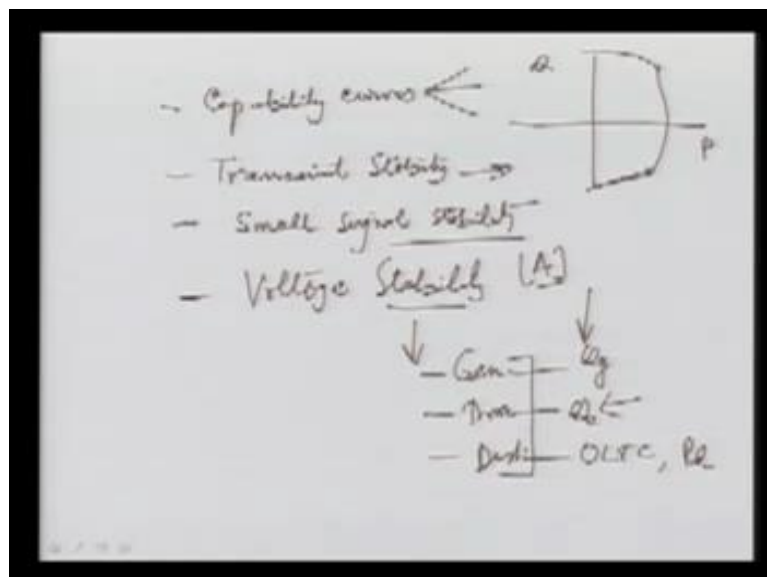 - Capability curves
Q
P
- Transient Stability
- Small signal stability
- Voltage Stability [A]
- Gen - Qg
- Q
- Dist - OLTC,